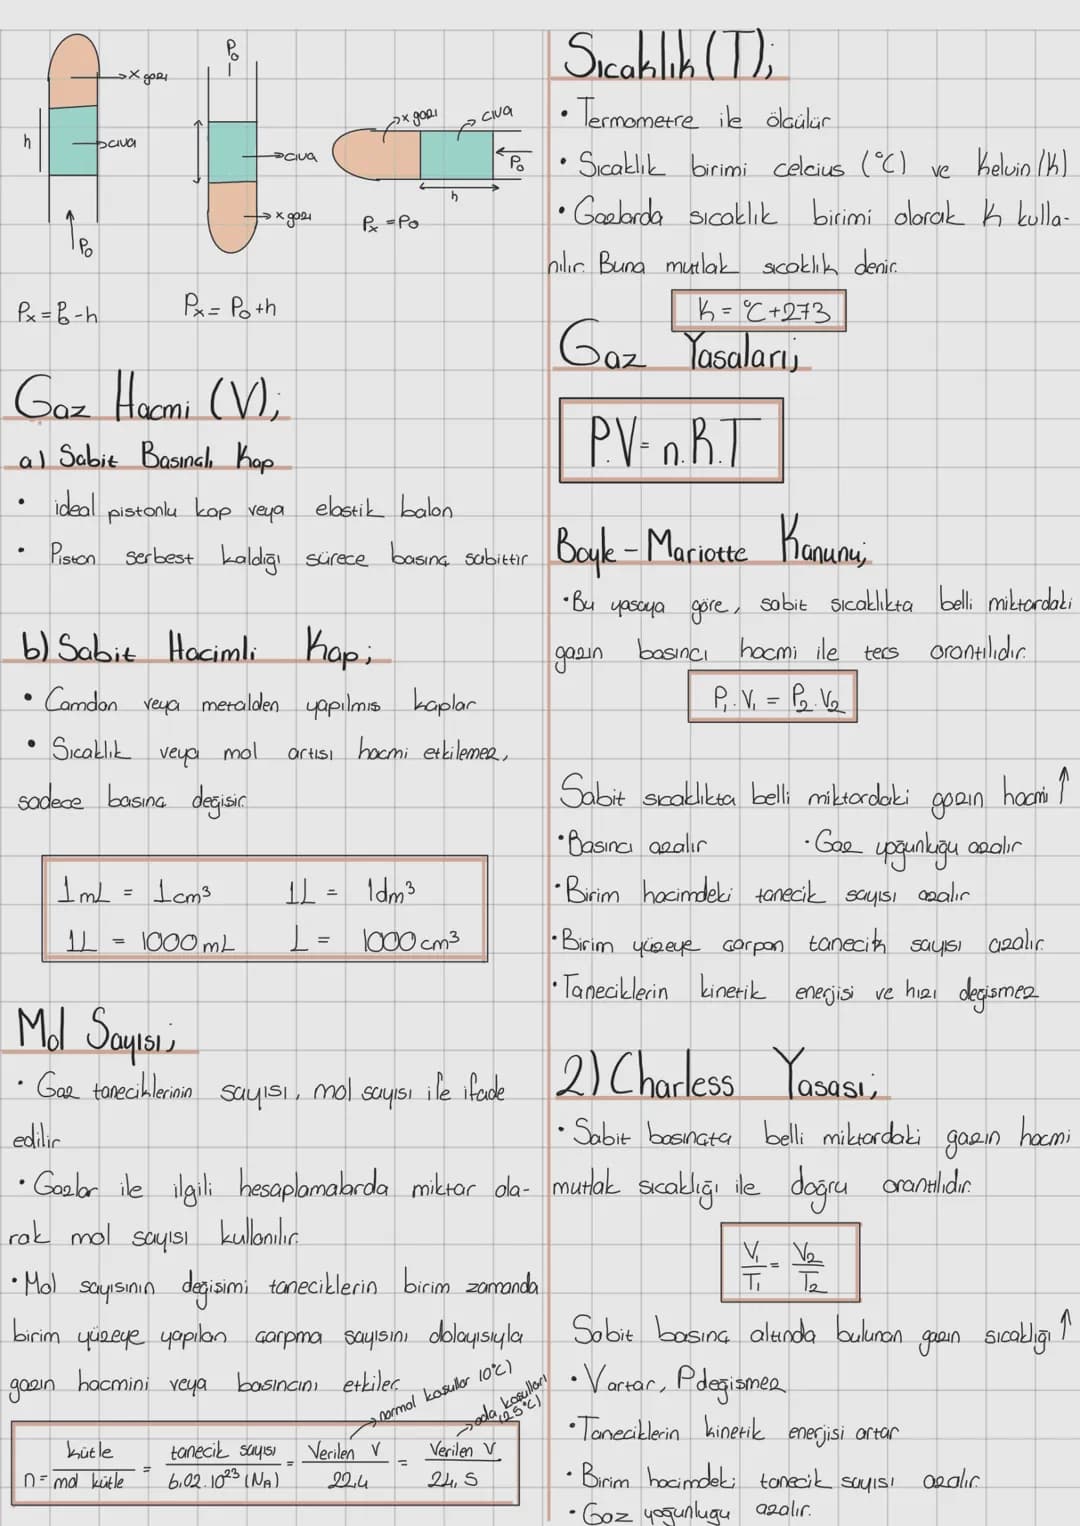 x gazı
h
civa
P₀
Pₓ = P₀ - h
P₀
civa
x gazı
Pₓ = P₀ + h
x gazı
civa
P₀
h
Pₓ = P₀
Gaz Hacmi (V);
a) Sabit Basınçlı Kap
• ideal pistonlu kap veya elastik balon
• Piston serbest kaldığı sürece basınç sabittir
b) Sabit Hacimli Kap;
• Camdan veya metalden yapılmış kaplar
• Sıcaklık veya mol artışı hacmi etkilemez,
sadece basınç değişir.
1mL = 1cm³ 1L = 1dm³
1L = 1000mL L = 1000cm³
Mol Sayısı;
• Gaz taneciklerinin sayısı, mol sayısı ile ifade
edilir
• Gazlar ile ilgili hesaplamalarda miktar ola-
rak mol sayısı kullanılır.
• Mol sayısının değişimi taneciklerin birim zamanda
birim yüzeye yapılan çarpma sayısını dolayısıyla
gazın hacmini veya basıncını etkiler.
normal koşullar 10°C)
oda koşulları
(25°C)
n = kütle / mol kütle = tanecik sayısı / 6,02.10²³ (Na) = Verilen V / 22,4 = Verilen V / 24,5
Sıcaklık (T);
• Termometre ile ölçülür
• Sıcaklık birimi celcius (°C) ve Kelvin (K)
• Gazlarda sıcaklık birimi olarak K kulla-
nılır. Buna mutlak sıcaklık denir.
K = °C + 273
Gaz Yasaları;
P.V = n.R.T
Boyle - Mariotte Kanunu;
• Bu yasaya göre, sabit sıcaklıkta belli miktardaki
gazın basıncı hacmi ile ters orantılıdır.
P₁.V₁ = P₂.V₂
Sabit sıcaklıkta belli miktardaki gazın hacmi ↑
• Basıncı azalır • Gaz yoğunluğu azalır
• Birim hacimdeki tanecik sayısı azalır
• Birim yüzeye çarpan tanecik sayısı azalır.
• Taneciklerin kinetik enerjisi ve hızı değişmez
2) Charless Yasası;
• Sabit basınçta belli miktardaki gazın hacmi
mutlak sıcaklığı ile doğru orantılıdır.
V₁/T₁ = V₂/T₂
Sabit basınç altında bulunan gazın sıcaklığı ↑
• V artar, P değişmez
• Taneciklerin kinetik enerjisi artar
• Birim hacimdeki tanecik sayısı azalır.
• Gaz yoğunluğu azalır.